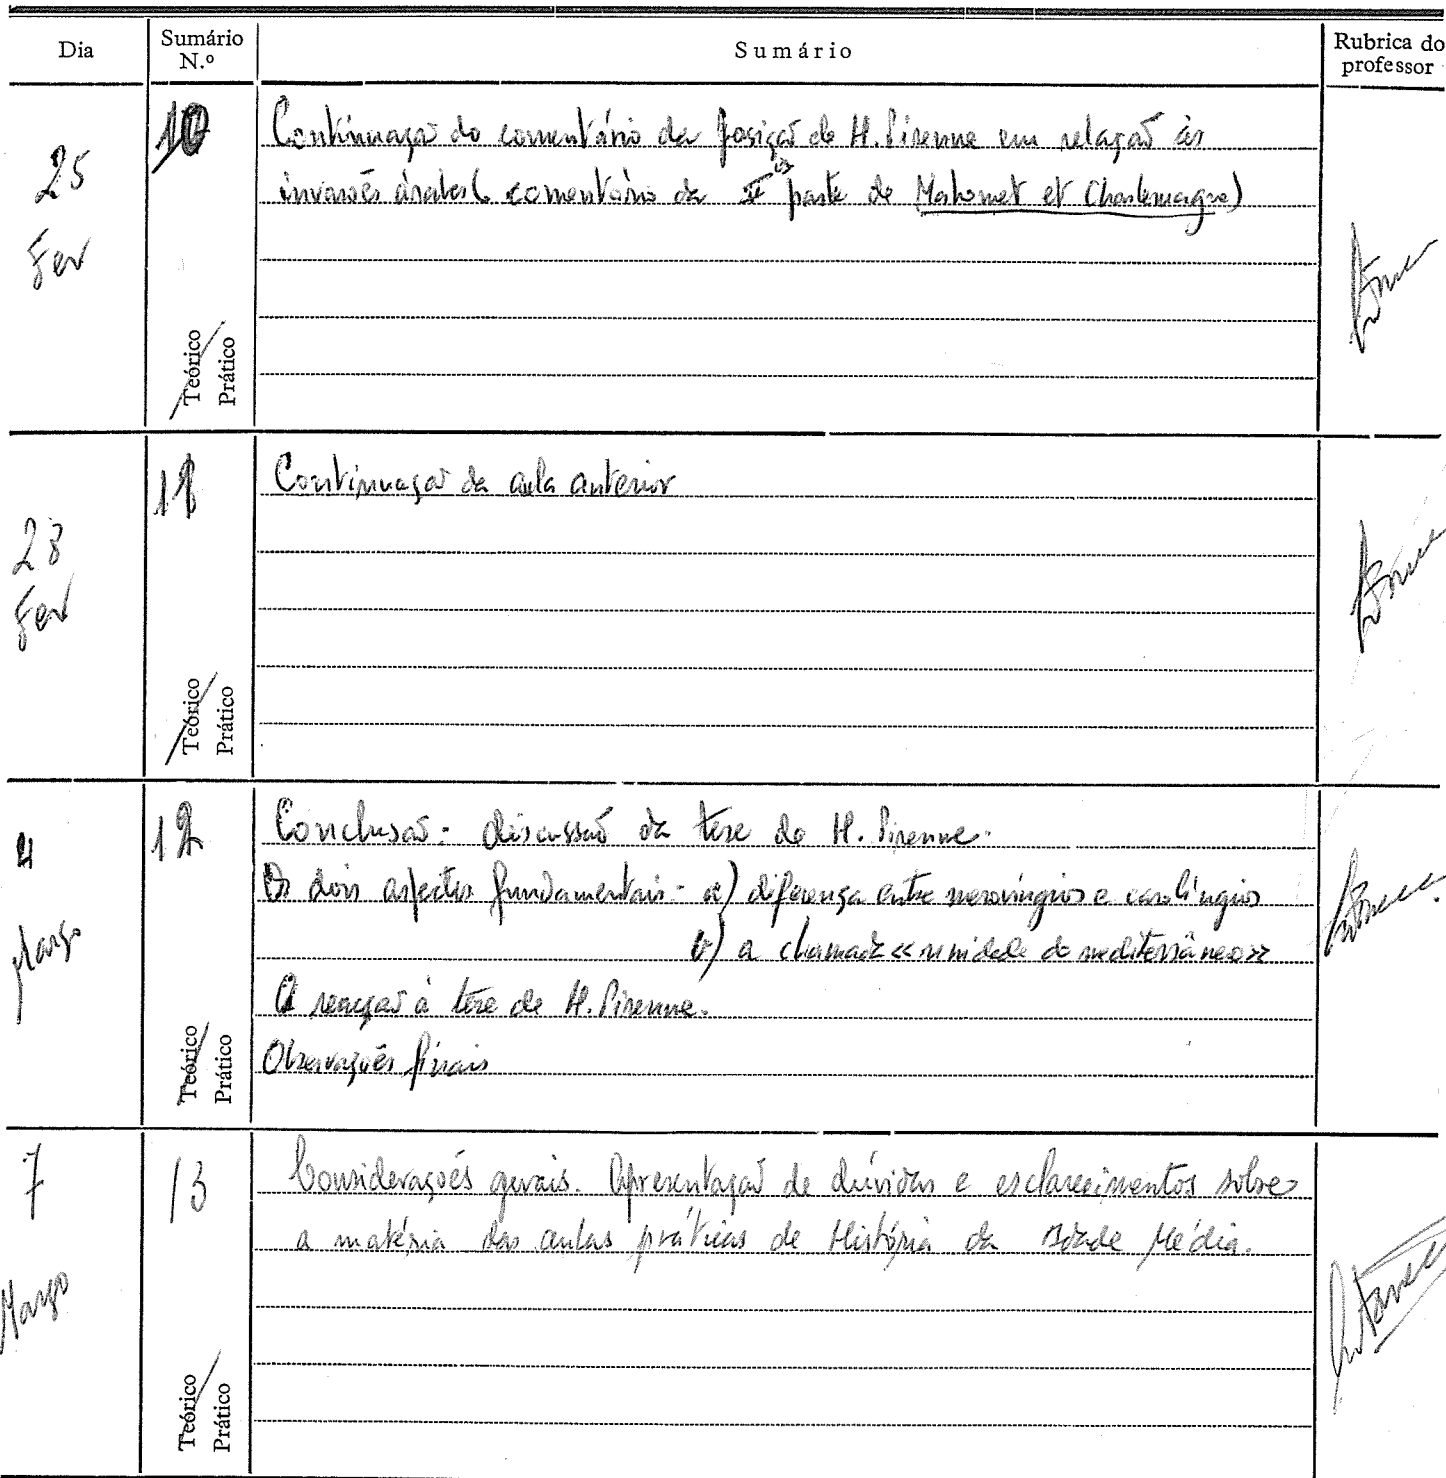 Dia
Sumário N.º
Sumário
Rubrica do professor
25 Fev
10
Continuação do comentário da posição de H. Pirenne em relação às
invasões árabes (comentário da parte de Mahomet et Charlemagne)
Teórico
Prático
28 Fev
11
Continuação da aula anterior
Teórico
Prático
4 Março
12
Conclusão: discussão da tese de H. Pirenne.
Os dois aspectos fundamentais - a) diferença entre merovíngios e carolíngios
b) a chamada «unidade do mediterrâneo»
A reacção à tese de H. Pirenne.
Observações finais
Teórico
Prático
7 Março
13
Considerações gerais. Apresentação de dúvidas e esclarecimentos sobre
a matéria das aulas práticas de História da Idade Média.
Teórico
Prático